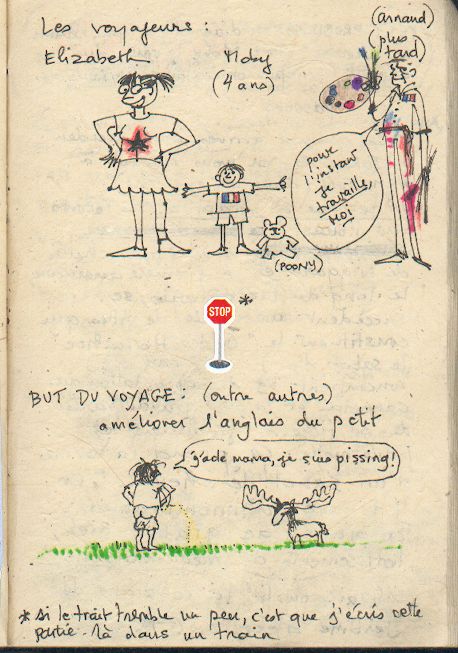 Les voyageurs :
Elizabeth
Moby
(4 ans)
(arnaud)
(plus
tard)
pour
l'instant
je
travaille,
MOI
(POONY)
STOP *
BUT DU VOYAGE : (entre autres)
améliorer l'anglais du petit
mama, je suis pissing!
* si le trait tremble un peu, c'est que j'écris cette
partie-là dans un train